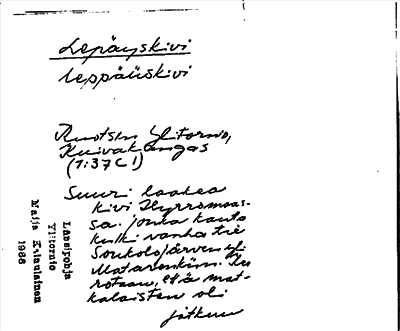 Lepäyskivi
leppäüskivi
Ruotsin Ylitornio,
Kuivakangas
(1:37 C 1)
Suuri laakea
kivi Hyrromaas-
sa. jonka kautta
kulki vanha tie
Soukolojärven yli
Matarenkiin. Ker-
rotaan, että mat-
kalaisten oli
jatkuu
Länsipohja
Ylitornio
Maija Kainulainen
1986